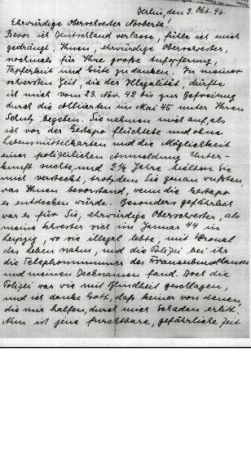 Berlin, den 9. Okt. 46.
Ehrwürdige Oberschwester Norberta!
Bevor ich Deutschland verlasse, fühle ich mich
gedrängt, Ihnen, ehrwürdige Oberschwester,
nochmals für Ihre große Aufopferung,
Tapferkeit und Güte zu danken. In meiner
schwersten Zeit, die der Illegalität, durfte
ich mich vom 23. Nov. 42 bis zur Befreiung
durch die Alliierten im Mai 45 unter Ihren
Schutz begeben. Sie nahmen mich auf, als
ich vor der Gestapo flüchtete und ohne
Lebensmittelkarten und die Möglichkeit
einer polizeilichen Anmeldung Unter-
kunft suchte und 2½ Jahre hielten Sie
mich versteckt, trotzdem Sie genau wußten,
was Ihnen bevorstand, wenn die Gestapo
es entdecken würde. Besonders gefährlich
war es für Sie, ehrwürdige Oberschwester, als
meine Schwester sich im Januar 44 in
Leipzig, wo sie illegal lebte, mit Veronal
das Leben nahm, und die Polizei bei ihr
die Telephonnummer des
und meinen Decknamen fand. Doch die
Polizei war wie mit Blindheit geschlagen,
und ich danke Gott, daß keiner von denen,
die mir halfen, durch mich Schaden erlitt.
Nun ist jene furchtbare, gefährliche Zeit